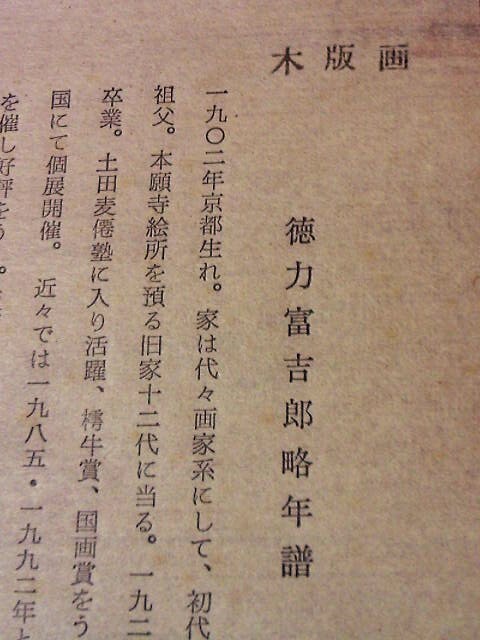 木版画
徳力富吉郎略年譜
一九〇二年京都生れ。家は代々画家系にして、初代
祖父。本願寺絵所を預る旧家十二代に当る。一九二
卒業。土田麦僊塾に入り活躍、樗牛賞、国画賞をう
国にて個展開催。 近々では一九八五・一九九二年と
を催し好評をう